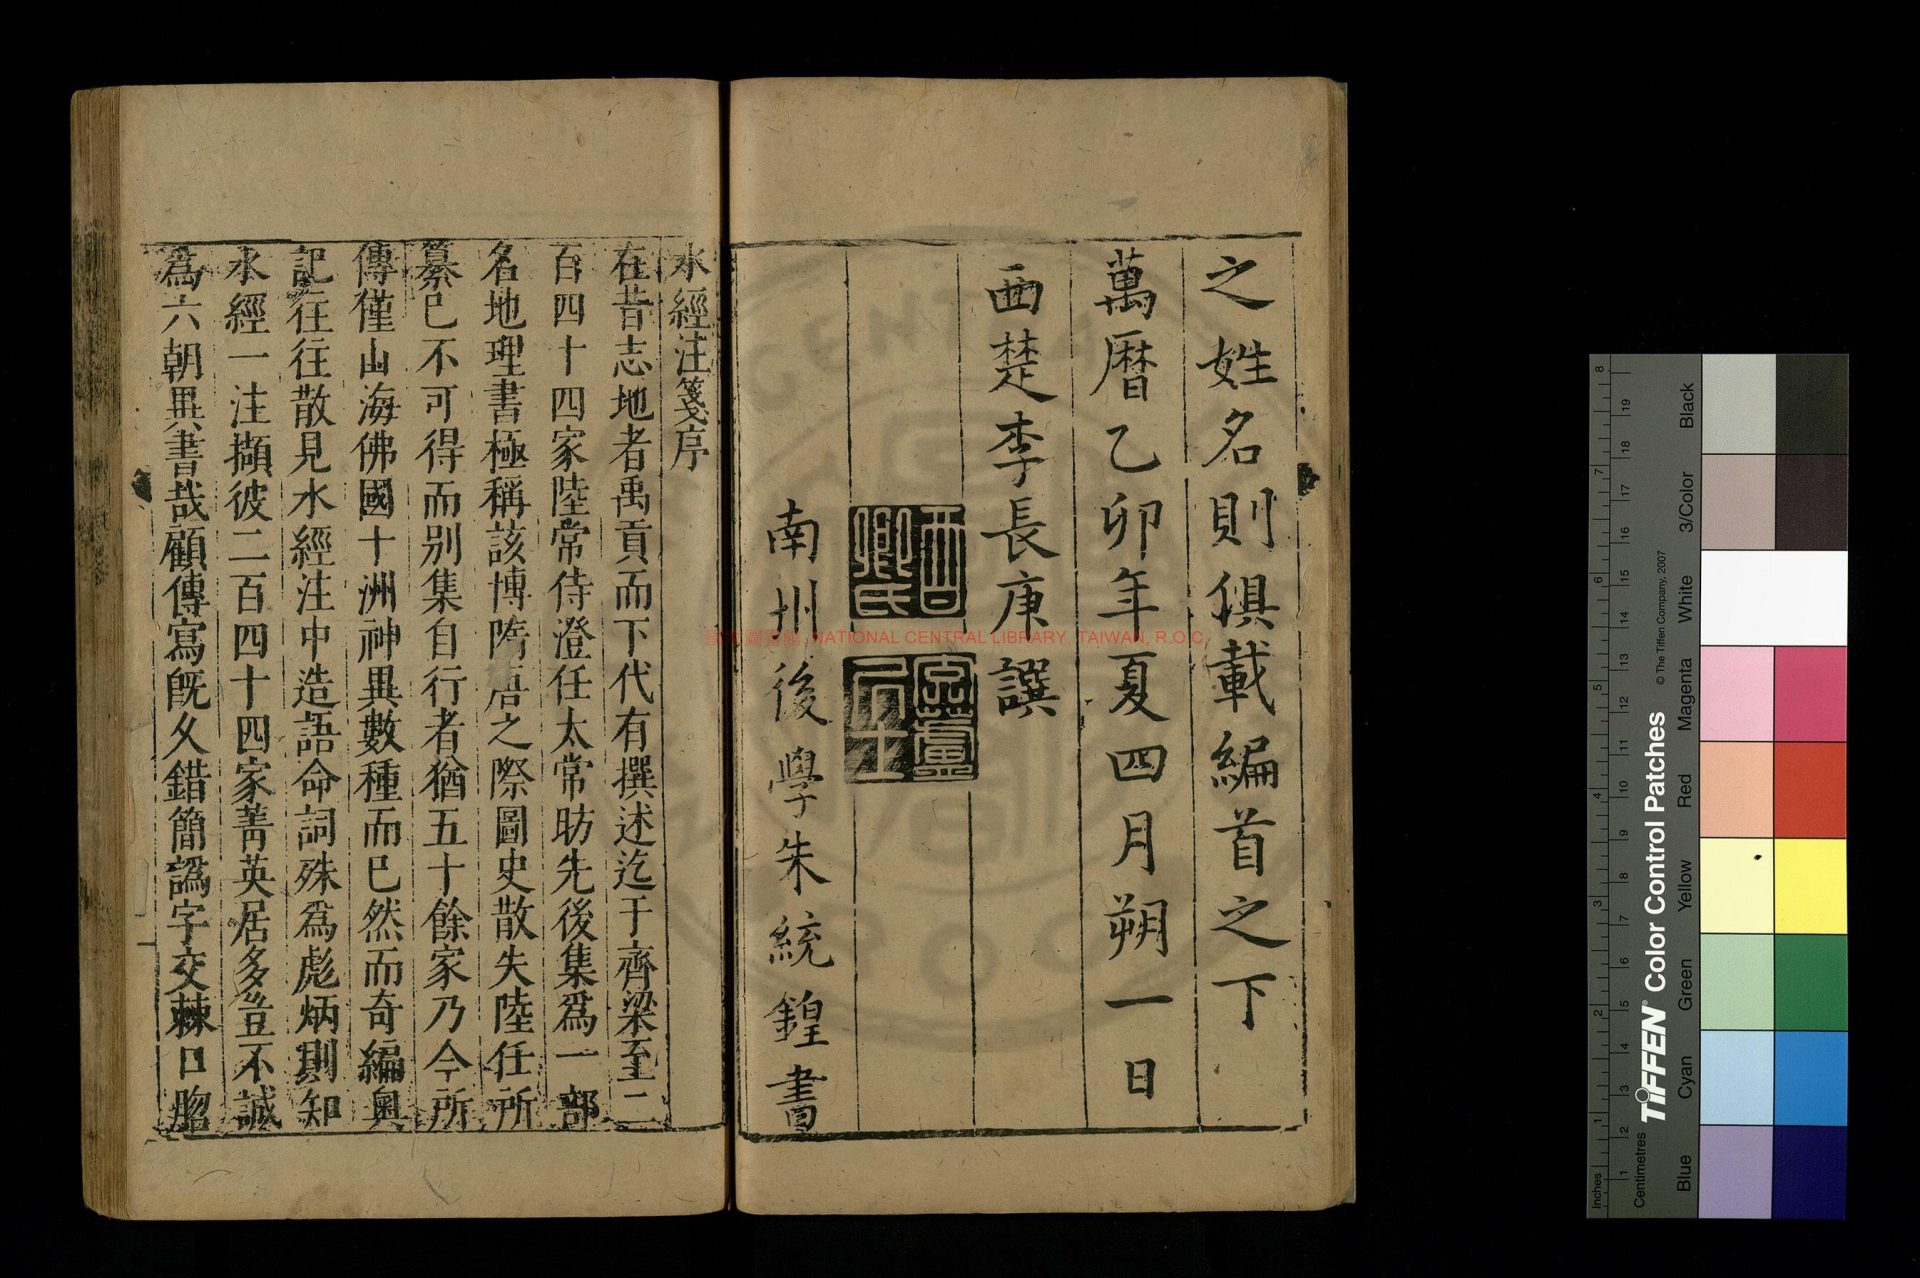 之姓名則俱載編首之下
萬曆乙卯年夏四月朔一日
西楚李長庚譔
酉卿氏
南州後學朱統鍠書
水經注箋序
在昔志地者禹貢而下代有撰述迄于齊梁至二
百四十四家陸常侍澄任太常昉先後集爲一部
名地理書極稱該博隋唐之際圖史散失陸任所
纂已不可得而别集自行者猶五十餘家乃今所
傳僅山海佛國十洲神異數種而已然而奇編奧
記往往散見水經注中造語命詞殊爲彪炳則知
水經一注擷彼二百四十四家菁英居多豈不誠
爲六朝異書哉顧傳寫旣久錯簡譌字交棘口吻
國家圖書館, NATIONAL CENTRAL LIBRARY, TAIWAN, R.O.C.
TIFFEN® Color Control Patches
© The Tiffen Company, 2007
Inches
Centimetres
Blue
Cyan
Green
Yellow
Red
Magenta
White
3/Color
Black